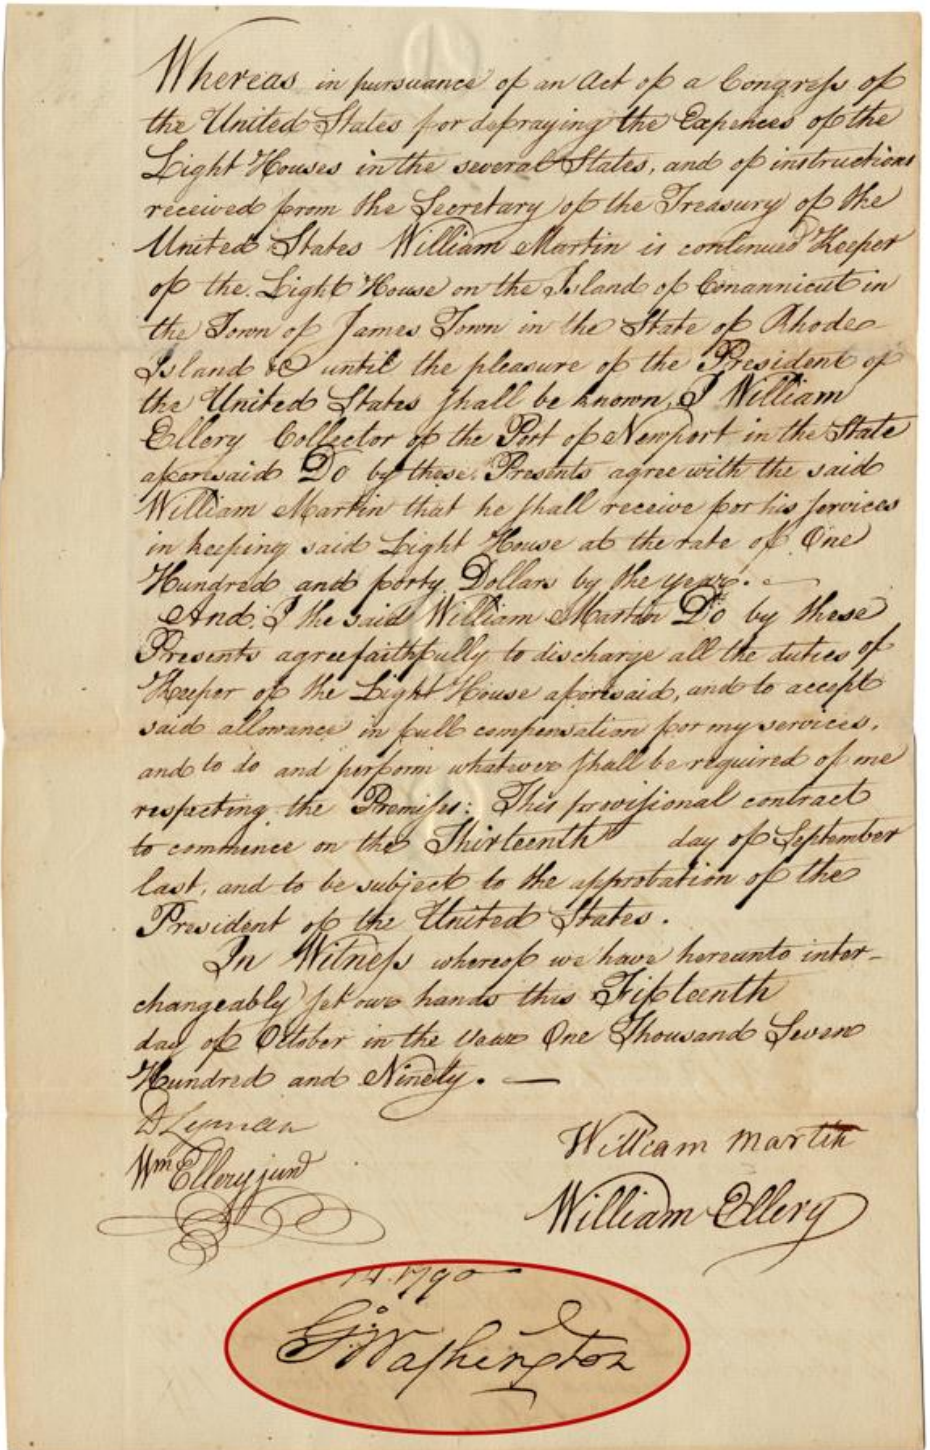 Whereas in pursuance of an Act of a Congress of
the United States for defraying the Expences of the
Light Houses in the several States, and of instructions
received from the Secretary of the Treasury of the
United States William Martin is continued Keeper
of the Light House on the Island of Conannicut in
the Town of James Town in the State of Rhode
Island &c until the pleasure of the President of
the United States shall be known, I William
Ellery Collector of the Port of Newport in the State
aforesaid Do by these Presents agree with the said
William Martin that he shall receive for his services
in keeping said Light House at the rate of One
Hundred and forty Dollars by the year. —
And I the said William Martin Do by these
Presents agree faithfully to discharge all the duties of
Keeper of the Light House aforesaid, and to accept
said allowance in full compensation for my services,
and to do and perform whatever shall be required of me
respecting the Premises: This provisional contract
to commence on the Thirteenth day of September
last, and to be subject to the approbation of the
President of the United States.
In Witness whereof we have hereunto inter-
changeably set our hands this Fifteenth
day of October in the year One Thousand Seven
Hundred and Ninety. —
D Lyman
Wm Ellery junr
William Martin
William Ellery
1790
G. Washington